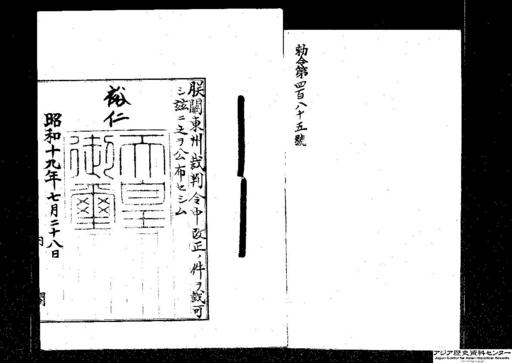 勅令第四百八十五號
朕關東州裁判令中改正ノ件ヲ裁可
シ茲ニ之ヲ公布セシム
裕仁
天皇
御璽
昭和十九年七月二十八日
内閣
アジア歴史資料センター
Japan Center for Asian Historical Records